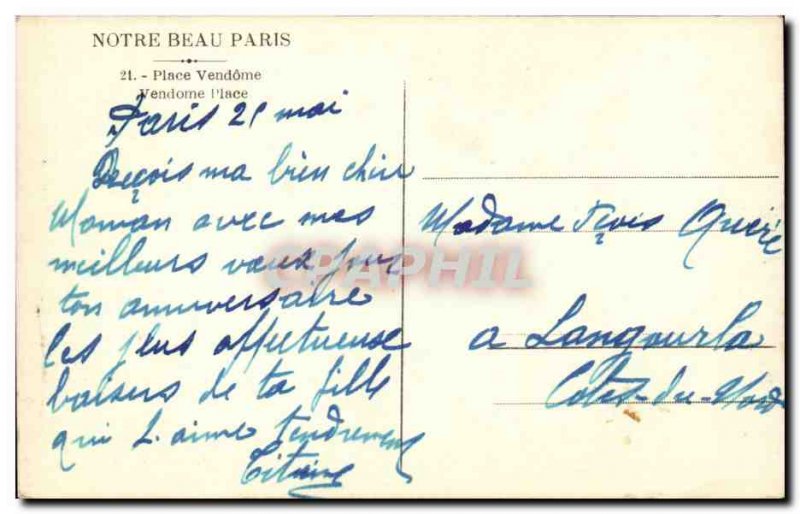 NOTRE BEAU PARIS
21. - Place Vendôme
Vendome Place
Paris 21 mai
Reçois ma bien chère
Maman avec mes
meilleurs vœux pour
ton anniversaire
les plus affectueuse
baisers de ta fille
qui t'aime tendrement
Madame Fçois
a Langourla
Cotes-du-Nord
CPAPHIL